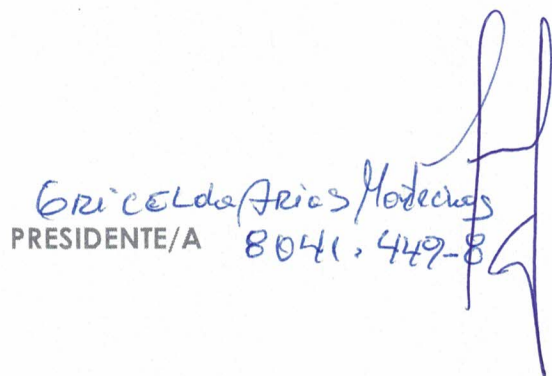 GRiCELda Arias
PRESIDENTE/A 8041.449-8